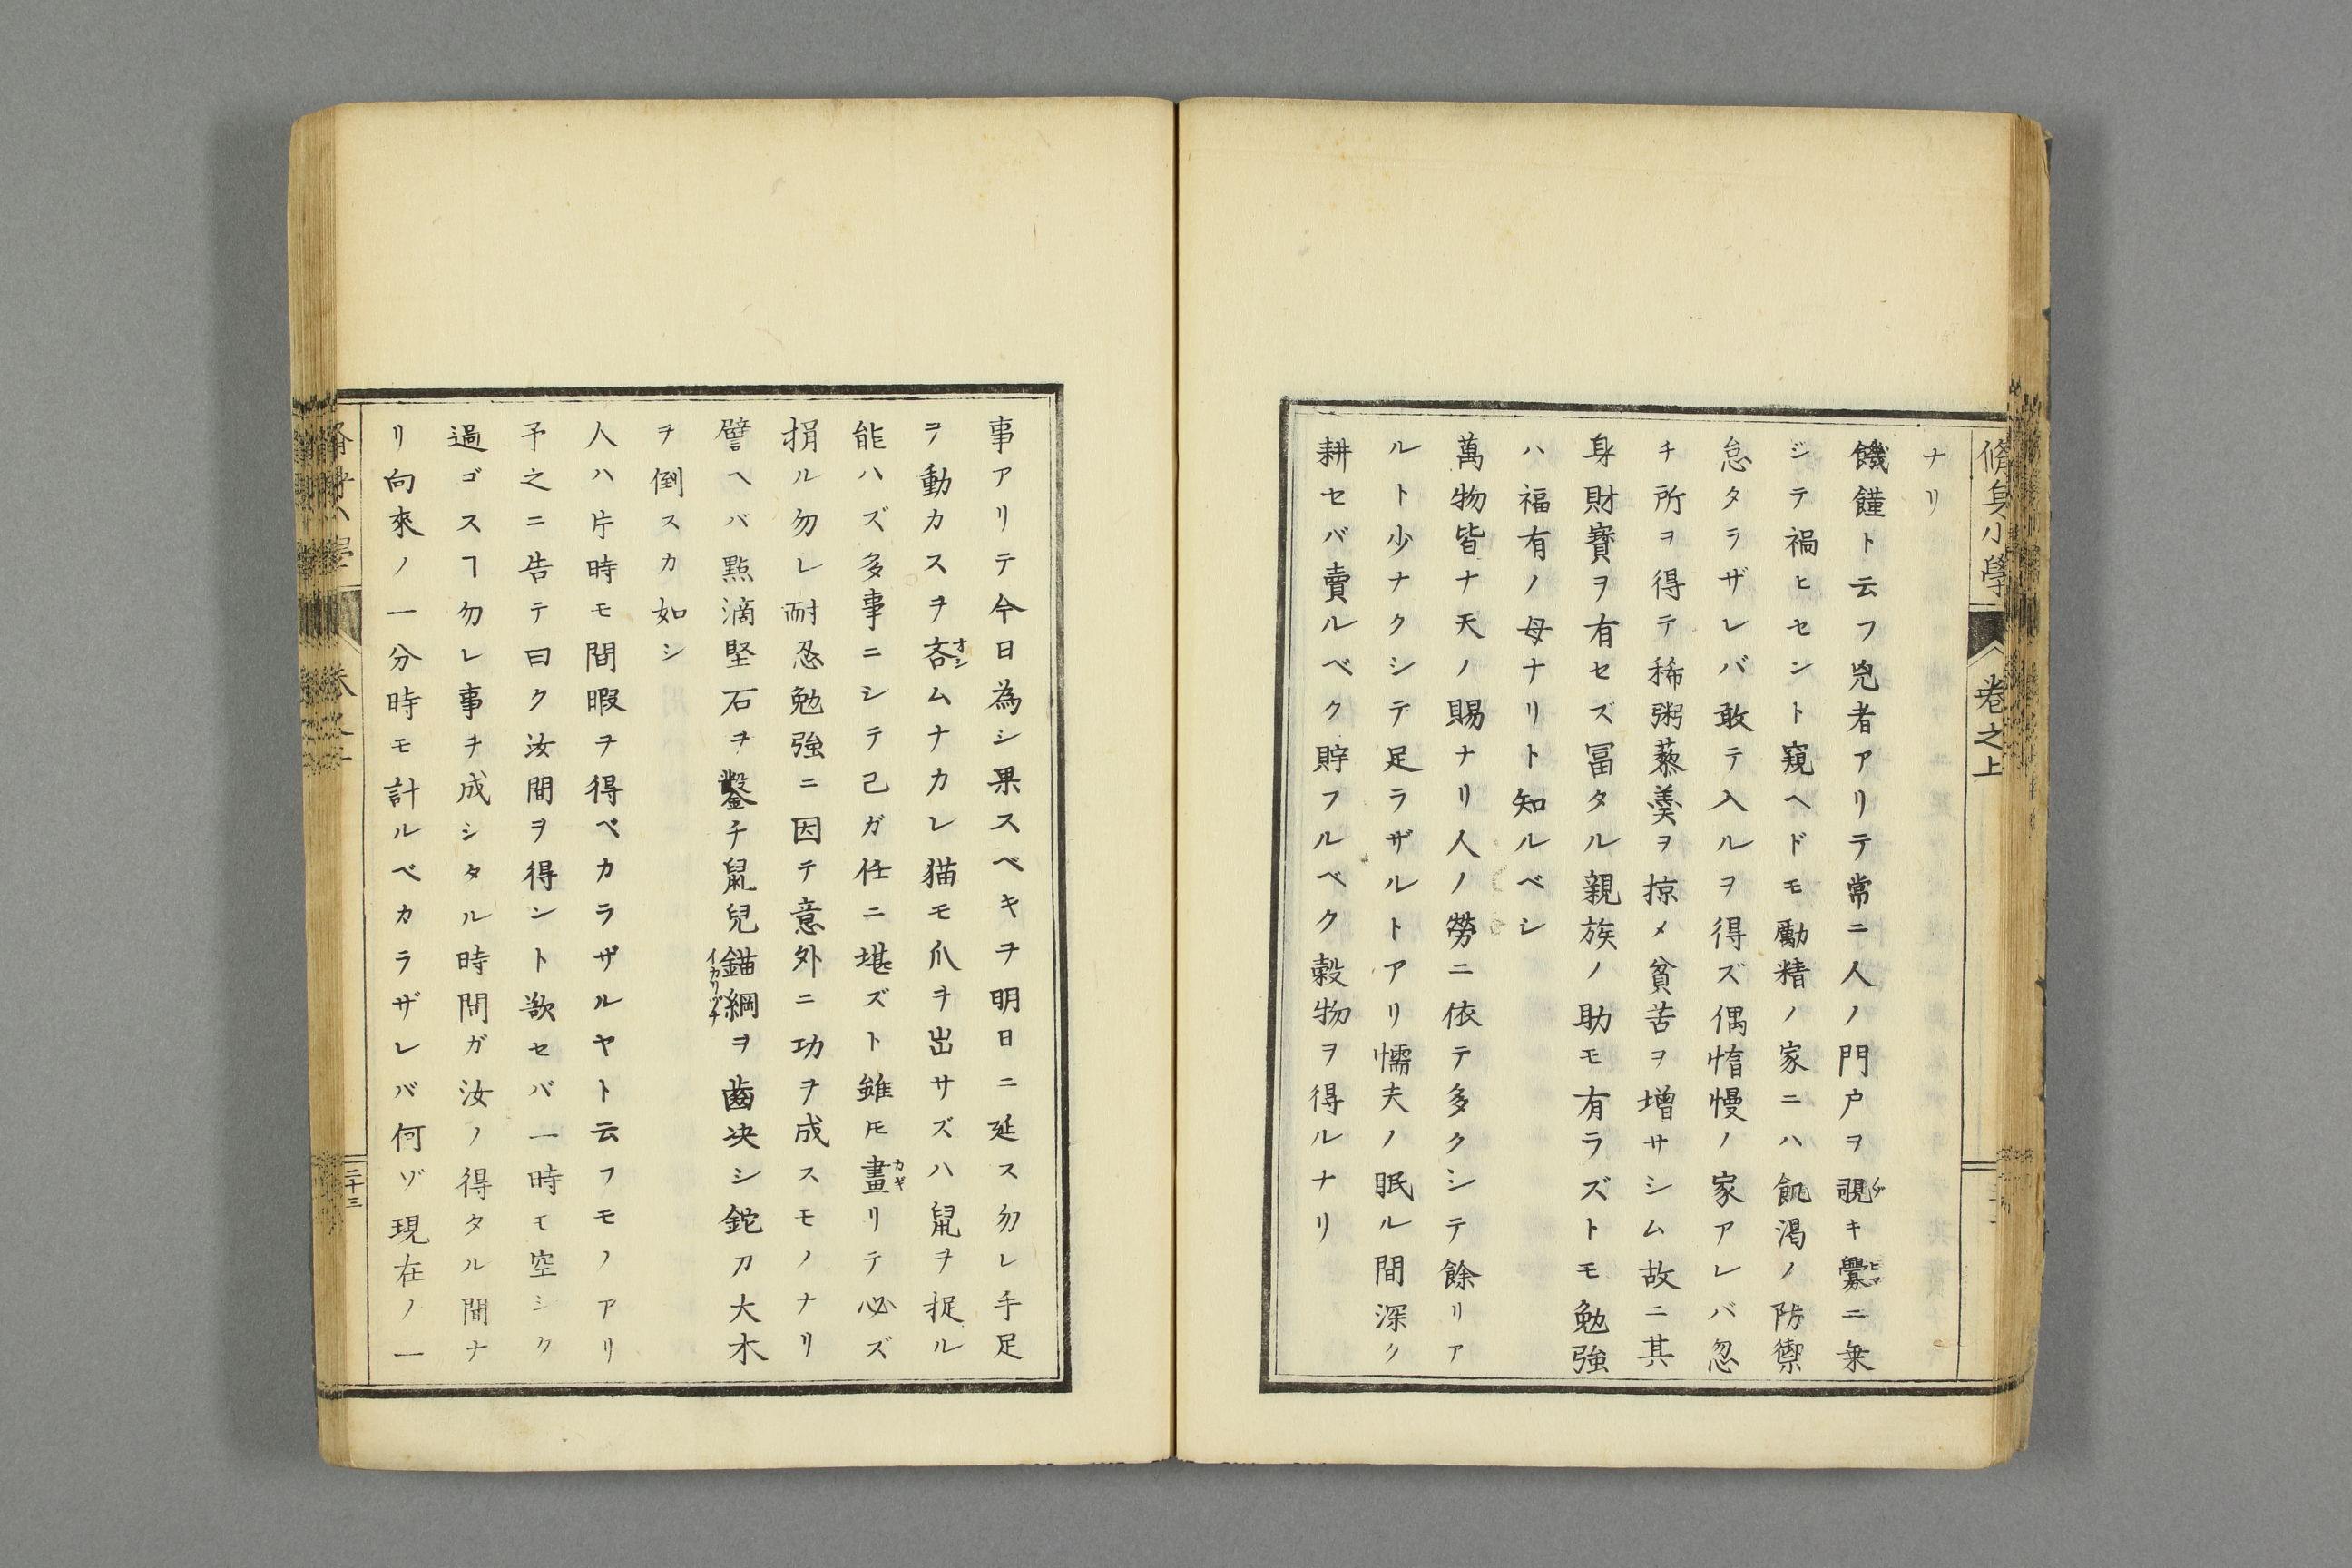 脩身小學
卷之上
ナリ
饑饉ト云フ兇者アリテ常ニ人ノ門戸ヲ覗キ釁ニ乗
ジテ禍ヒセント窺ヘドモ勵精ノ家ニハ飢渇ノ防禦
怠タラザレバ敢テ入ルヲ得ズ偶惰慢ノ家アレバ忽
チ所ヲ得テ稀粥藜羹ヲ掠メ貧苦ヲ增サシム故ニ其
身財寳ヲ有セズ冨タル親族ノ助モ有ラズトモ勉強
ハ福有ノ母ナリト知ルベシ
萬物皆ナ天ノ賜ナリ人ノ勞ニ依テ多クシテ餘リア
ルト少ナクシテ足ラザルトアリ懦夫ノ眠ル間深ク
耕セバ賣ルベク貯フルベク穀物ヲ得ルナリ
事アリテ今日為シ果スベキヲ明日ニ延ス勿レ手足
ヲ動カスヲ吝オシムナカレ猫モ爪ヲ出サズハ鼠ヲ捉ル
能ハズ多事ニシテ己ガ任ニ堪ズト雖𪜈畫カギリテ必ズ
捐ル勿レ耐忍勉強ニ因テ意外ニ功ヲ成スモノナリ
譬ヘバ點滴堅石ヲ鑿チ鼠兒錨綱イカリヅナヲ齒决シ鉈刀大木
ヲ倒スカ如シ
人ハ片時モ間暇ヲ得ベカラザルヤト云フモノアリ
予之ニ告テ曰ク汝間ヲ得ント欲セバ一時モ空シク
過ゴスヿ勿レ事ヲ成シタル時間ガ汝ノ得タル間ナ
リ向來ノ一分時モ計ルベカラザレバ何ゾ現在ノ一
二十三